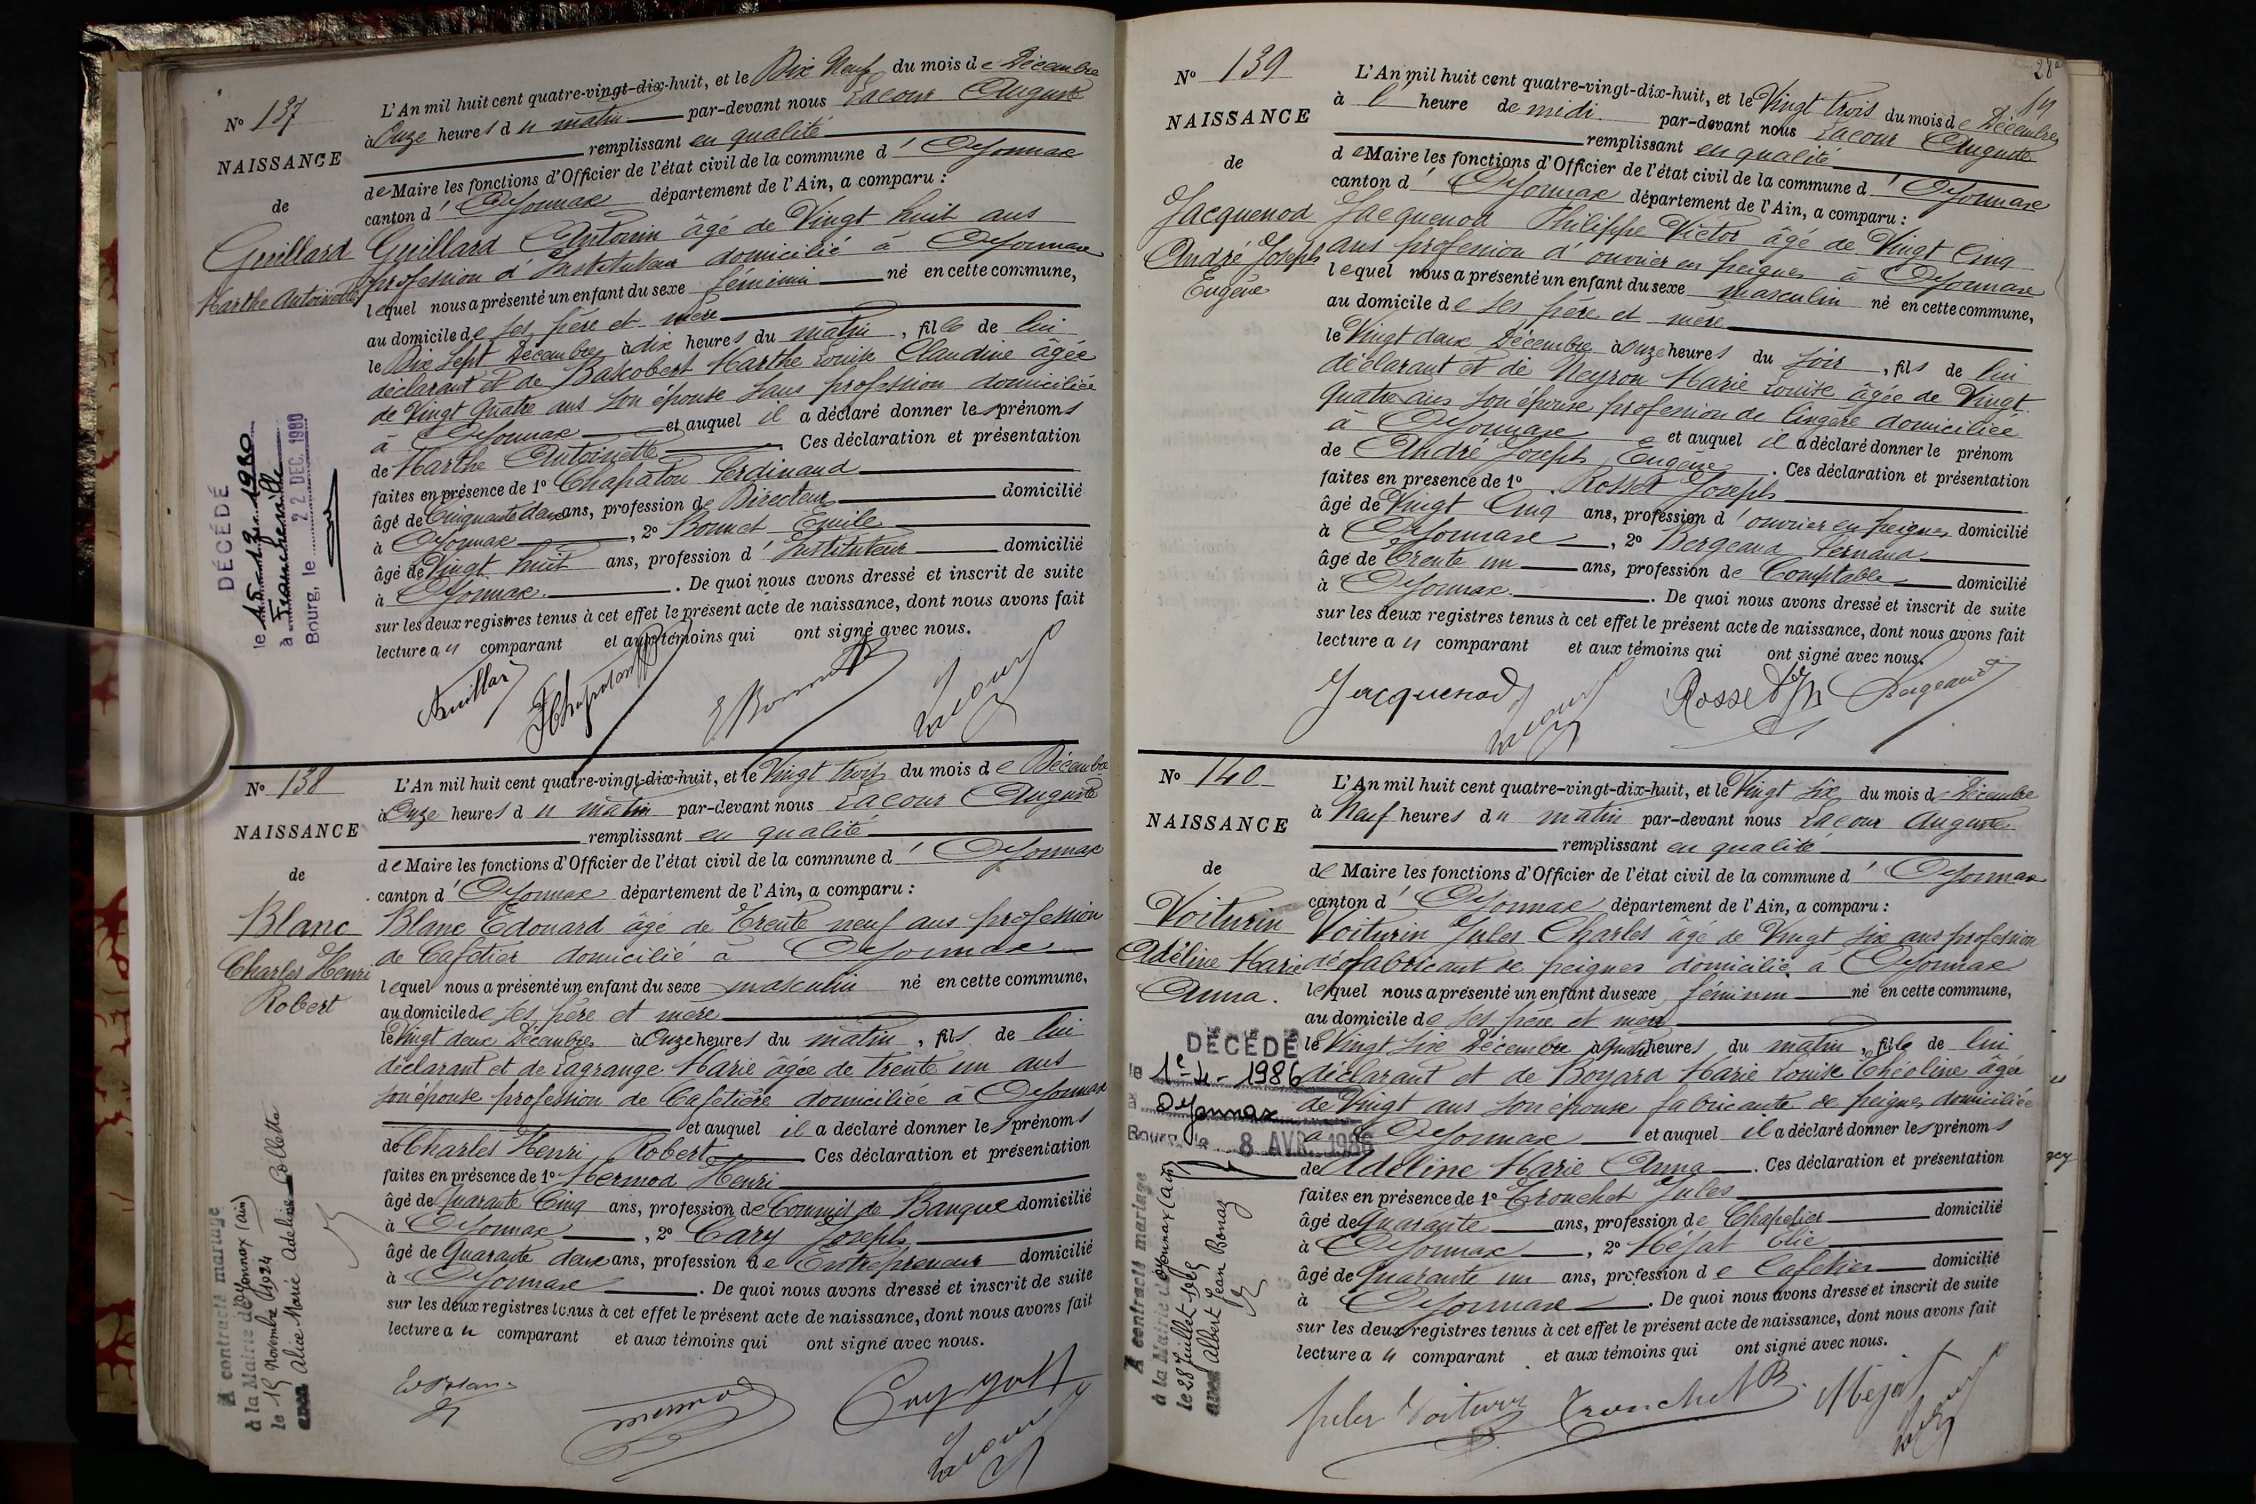 N° 137
NAISSANCE
de
Guillard
Marthe Antoinette
L'An mil huit cent quatre-vingt-dix-huit, et le Dix Neuf du mois de Décembre
à Onze heures du matin par-devant nous Lacour Auguste
remplissant en qualité
de Maire les fonctions d'Officier de l'état civil de la commune d'Oyonnax
canton d'Oyonnax département de l'Ain, a comparu :
Guillard Antonin âgé de Vingt huit ans
profession d'Instituteur domicilié à Oyonnax
lequel nous a présenté un enfant du sexe féminin né en cette commune,
au domicile de ses père et mère
le Dix Sept Décembre à dix heures du matin, fille de lui
déclarant et de Bascobert Marthe Louise Claudine âgée
de Vingt Quatre ans son épouse sans profession domiciliée
à Oyonnax et auquel il a déclaré donner les prénoms
de Marthe Antoinette Ces déclaration et présentation
faites en présence de 1° Chapaton Ferdinand
âgé de Cinquante deux ans, profession de Directeur domicilié
à Oyonnax, 2° Bonnet Emile
âgé de Vingt huit ans, profession d'Instituteur domicilié
à Oyonnax. De quoi nous avons dressé et inscrit de suite
sur les deux registres tenus à cet effet le présent acte de naissance, dont nous avons fait
lecture au comparant et aux témoins qui ont signé avec nous.
Guillard FChapaton EBonnet Lacour
DÉCÉDÉ
le 15.12.1980
à Francheville
Bourg, le 22 DEC. 1980
N° 138
NAISSANCE
de
Blanc
Charles Henri
Robert
L'An mil huit cent quatre-vingt-dix-huit, et le Vingt trois du mois de Décembre
à Onze heures du matin par-devant nous Lacour Auguste
remplissant en qualité
de Maire les fonctions d'Officier de l'état civil de la commune d'Oyonnax
canton d'Oyonnax département de l'Ain, a comparu :
Blanc Edouard âgé de Trente neuf ans profession
de Cafetier domicilié à Oyonnax
lequel nous a présenté un enfant du sexe masculin né en cette commune,
au domicile de ses père et mère
le Vingt deux Décembre à Onze heures du matin, fils de lui
déclarant et de Lagrange Marie âgée de trente un ans
son épouse profession de Cafetière domiciliée à Oyonnax
et auquel il a déclaré donner les prénoms
de Charles Henri Robert Ces déclaration et présentation
faites en présence de 1° Mermod Henri
âgé de Quarante Cinq ans, profession de Commis de Banque domicilié
à Oyonnax, 2° Cary Joseph
âgé de Quarante deux ans, profession de Entrepreneur domicilié
à Oyonnax. De quoi nous avons dressé et inscrit de suite
sur les deux registres tenus à cet effet le présent acte de naissance, dont nous avons fait
lecture au comparant et aux témoins qui ont signé avec nous.
Ed Blanc Mermod Lacour
A contracté mariage
à la Mairie de Oyonnax (Ain)
le 15 Novembre 1924
avec Alice Marie Adeline Collette
28
N° 139
NAISSANCE
de
Jacquenod
André Joseph
Eugène
L'An mil huit cent quatre-vingt-dix-huit, et le Vingt trois du mois de Décembre
à l'heure de midi par-devant nous Lacour Auguste
remplissant en qualité
de Maire les fonctions d'Officier de l'état civil de la commune d'Oyonnax
canton d'Oyonnax département de l'Ain, a comparu :
Jacquenod Philippe Victor âgé de Vingt Cinq
ans profession d'ouvrier en peignes à Oyonnax
lequel nous a présenté un enfant du sexe masculin né en cette commune,
au domicile de ses père et mère
le Vingt deux Décembre à Onze heures du soir, fils de lui
déclarant et de Neyron Marie Louise âgée de Vingt
Quatre ans son épouse profession de lingère domiciliée
à Oyonnax et auquel il a déclaré donner le prénom
de André Joseph Eugène. Ces déclaration et présentation
faites en présence de 1° Rosset Joseph
âgé de Vingt Cinq ans, profession d'ouvrier en peignes domicilié
à Oyonnax, 2° Bergeaud Fernand
âgé de Trente un ans, profession de Comptable domicilié
à Oyonnax. De quoi nous avons dressé et inscrit de suite
sur les deux registres tenus à cet effet le présent acte de naissance, dont nous avons fait
lecture au comparant et aux témoins qui ont signé avec nous.
Jacquenod Lacour Rosset Bergeaud
N° 140
NAISSANCE
de
Voiturin
Adéline Marie
Anna.
L'An mil huit cent quatre-vingt-dix-huit, et le Vingt six du mois de Décembre
à Neuf heures du matin par-devant nous Lacour Auguste
remplissant en qualité
de Maire les fonctions d'Officier de l'état civil de la commune d'Oyonnax
canton d'Oyonnax département de l'Ain, a comparu :
Voiturin Jules Charles âgé de Vingt six ans profession
de fabricant de peignes domicilié à Oyonnax
lequel nous a présenté un enfant du sexe féminin né en cette commune,
au domicile de ses père et mère
le Vingt Six Décembre à heures du matin, fille de lui
déclarant et de Boyard Marie Louise Théoline âgée
de Vingt ans son épouse fabricante de peignes domiciliée
à Oyonnax et auquel il a déclaré donner les prénoms
de Adéline Marie Anna. Ces déclaration et présentation
faites en présence de 1° Tronchet Jules
âgé de Quarante ans, profession de Chapelier domicilié
à Oyonnax, 2° Méjat Elie
âgé de Quarante un ans, profession de Cafetier domicilié
à Oyonnax. De quoi nous avons dressé et inscrit de suite
sur les deux registres tenus à cet effet le présent acte de naissance, dont nous avons fait
lecture au comparant et aux témoins qui ont signé avec nous.
Jules Voiturin Tronchet Méjat Lacour
DÉCÉDÉ
le 1e-4-1986
à Oyonnax
Bourg, le 8 AVR. 1986
A contracté mariage
à la Mairie d'Oyonnax (Ain)
le 28 Juillet
avec Albert Jean Bonaz